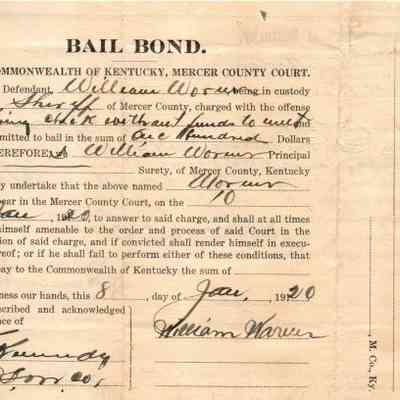 BAIL BOND.
OMMONWEALTH OF KENTUCKY, MERCER COUNTY COURT.
Defendant, William Warner being in custody
Sheriff of Mercer County, charged with the offense
ing check without funds to meet and
mitted to bail in the sum of One Hundred Dollars
EREFORE, William Warner Principal
Surety, of Mercer County, Kentucky
y undertake that the above named Warner
ear in the Mercer County Court, on the 10
Jan 1920, to answer to said charge, and shall at all times
imself amenable to the order and process of said Court in the
ion of said charge, and if convicted shall render himself in execu-
reof; or if he shall fail to perform either of these conditions, that
pay to the Commonwealth of Kentucky the sum of
ness our hands, this 8, day of Jan, 1920
scribed and acknowledged
ce of
William Warner
Kennedy
, M. Co., Ky.